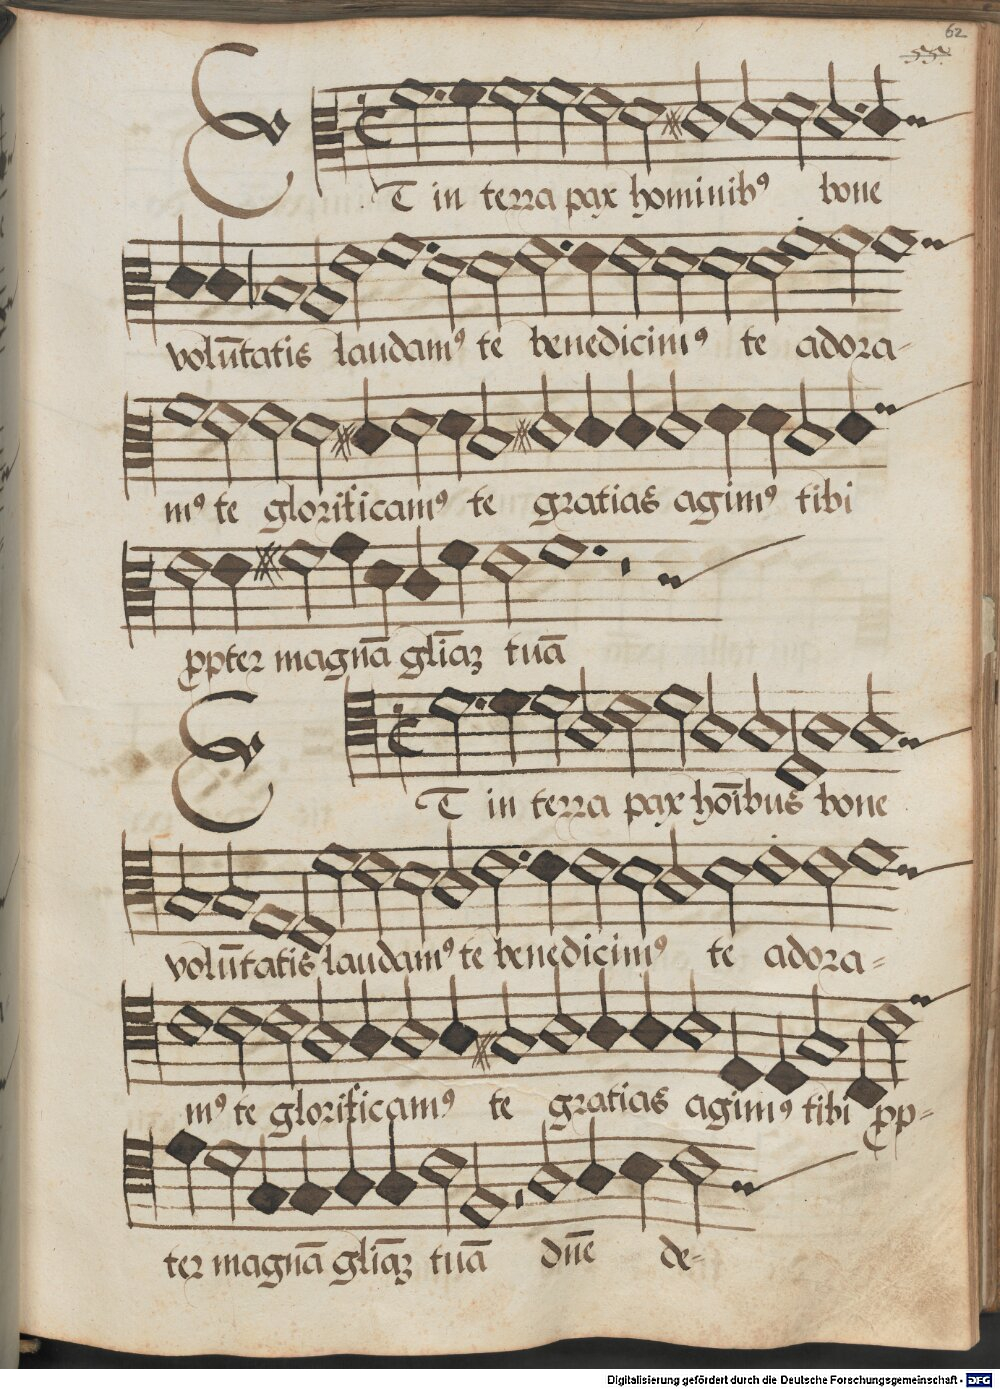 62
55.
ET in terra pax hominibꝰ bone
volūtatis laudamꝰ te benedicimꝰ te adora-
mꝰ te glorificamꝰ te gratias agimꝰ tibi
ꝓpter magnā gliāꝫ tuā
ET in terra pax hoībus bone
volūtatis laudamꝰ te benedicimꝰ te adora-
mꝰ te glorificamꝰ te gratias agimꝰ tibi ꝓp-
ter magnā gliāꝫ tuā dn̄e de-
Digitalisierung gefördert durch die Deutsche Forschungsgemeinschaft - DFG